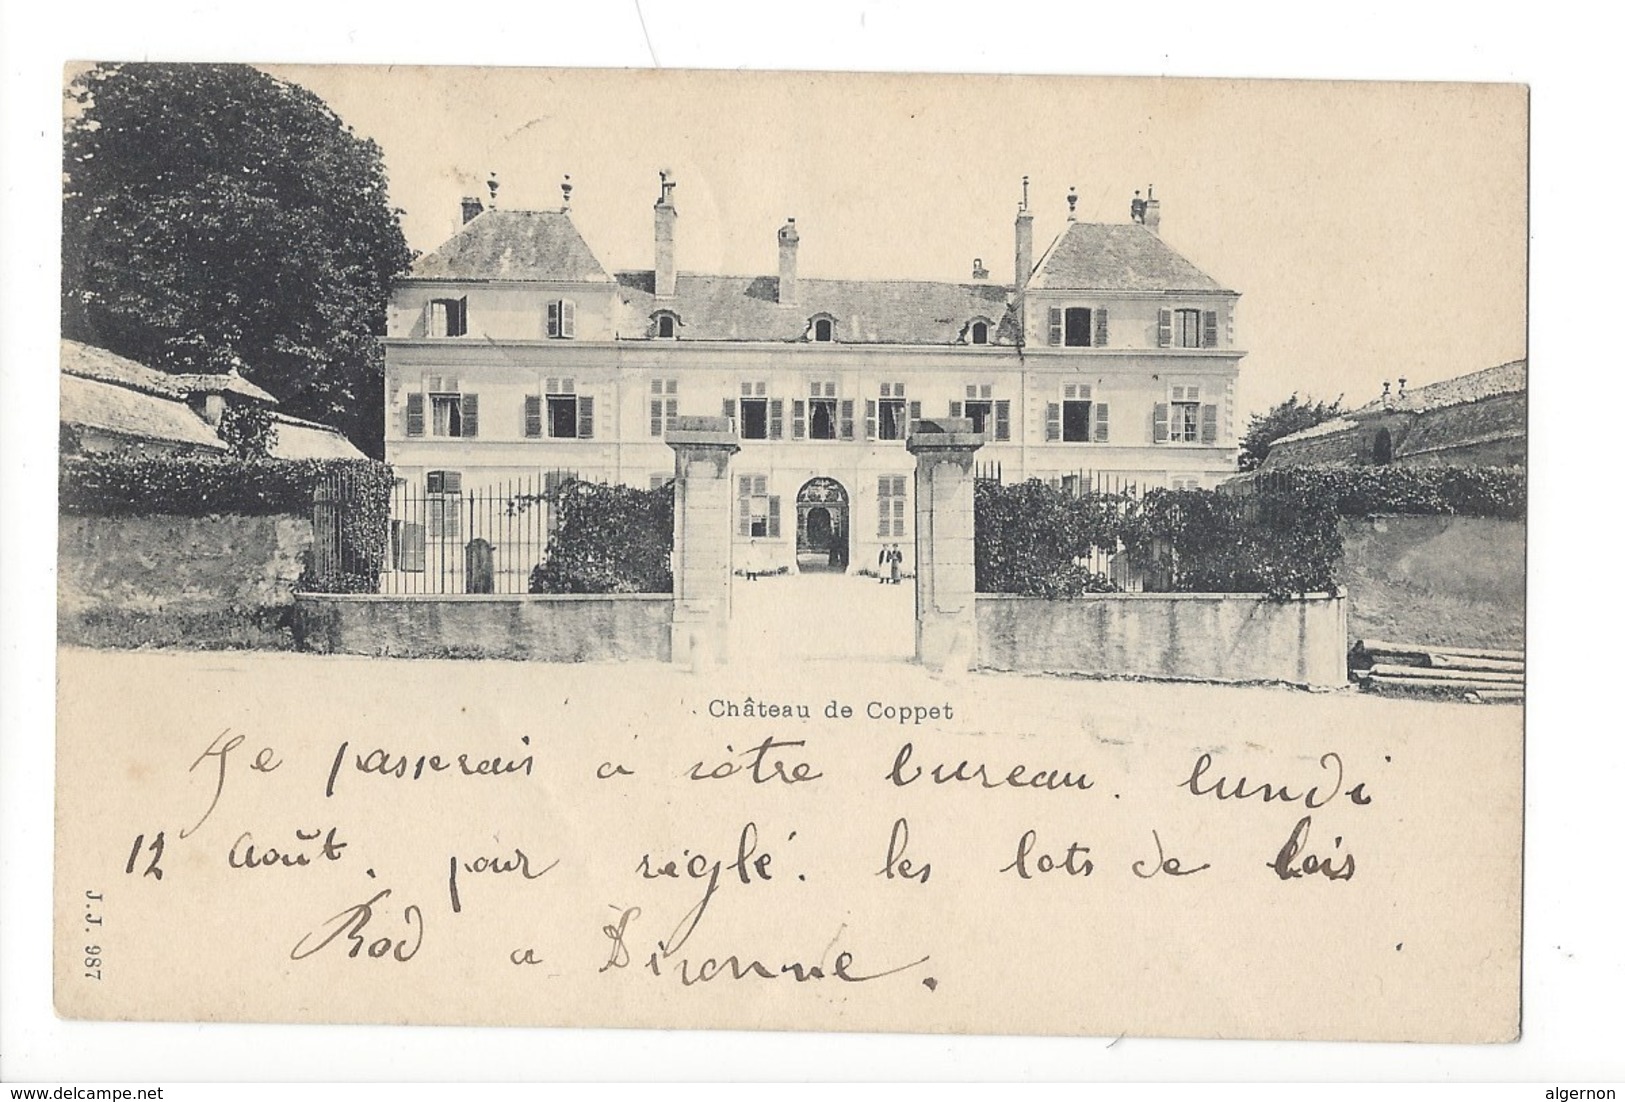 Château de Coppet
Je passerais a vôtre bureau. lundi
12 Août. pour réglé. les lots de bois
Rod a Sironne.
J.J. 987
www.delcampe.net
algernon